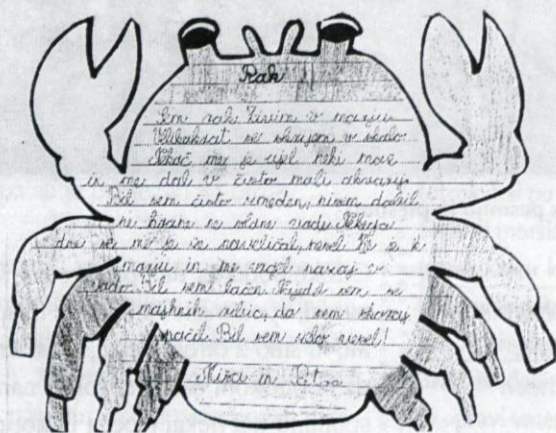 Rak
Sem rak. Živim v morju.
Velikokrat se skrijem v
Nekoč me je ujel neki mož
in me dal v čisto mali akvarij.
Bil sem čisto zmeden, nisem dobil
ne hrane ne vode. Nekega
dne se me je že naveličal,
morju in me vrgel nazaj v
Bil sem lačen. Najedel sem se
majhnih ribic, da sem skoraj
počil. Bil sem zelo vesel!
in